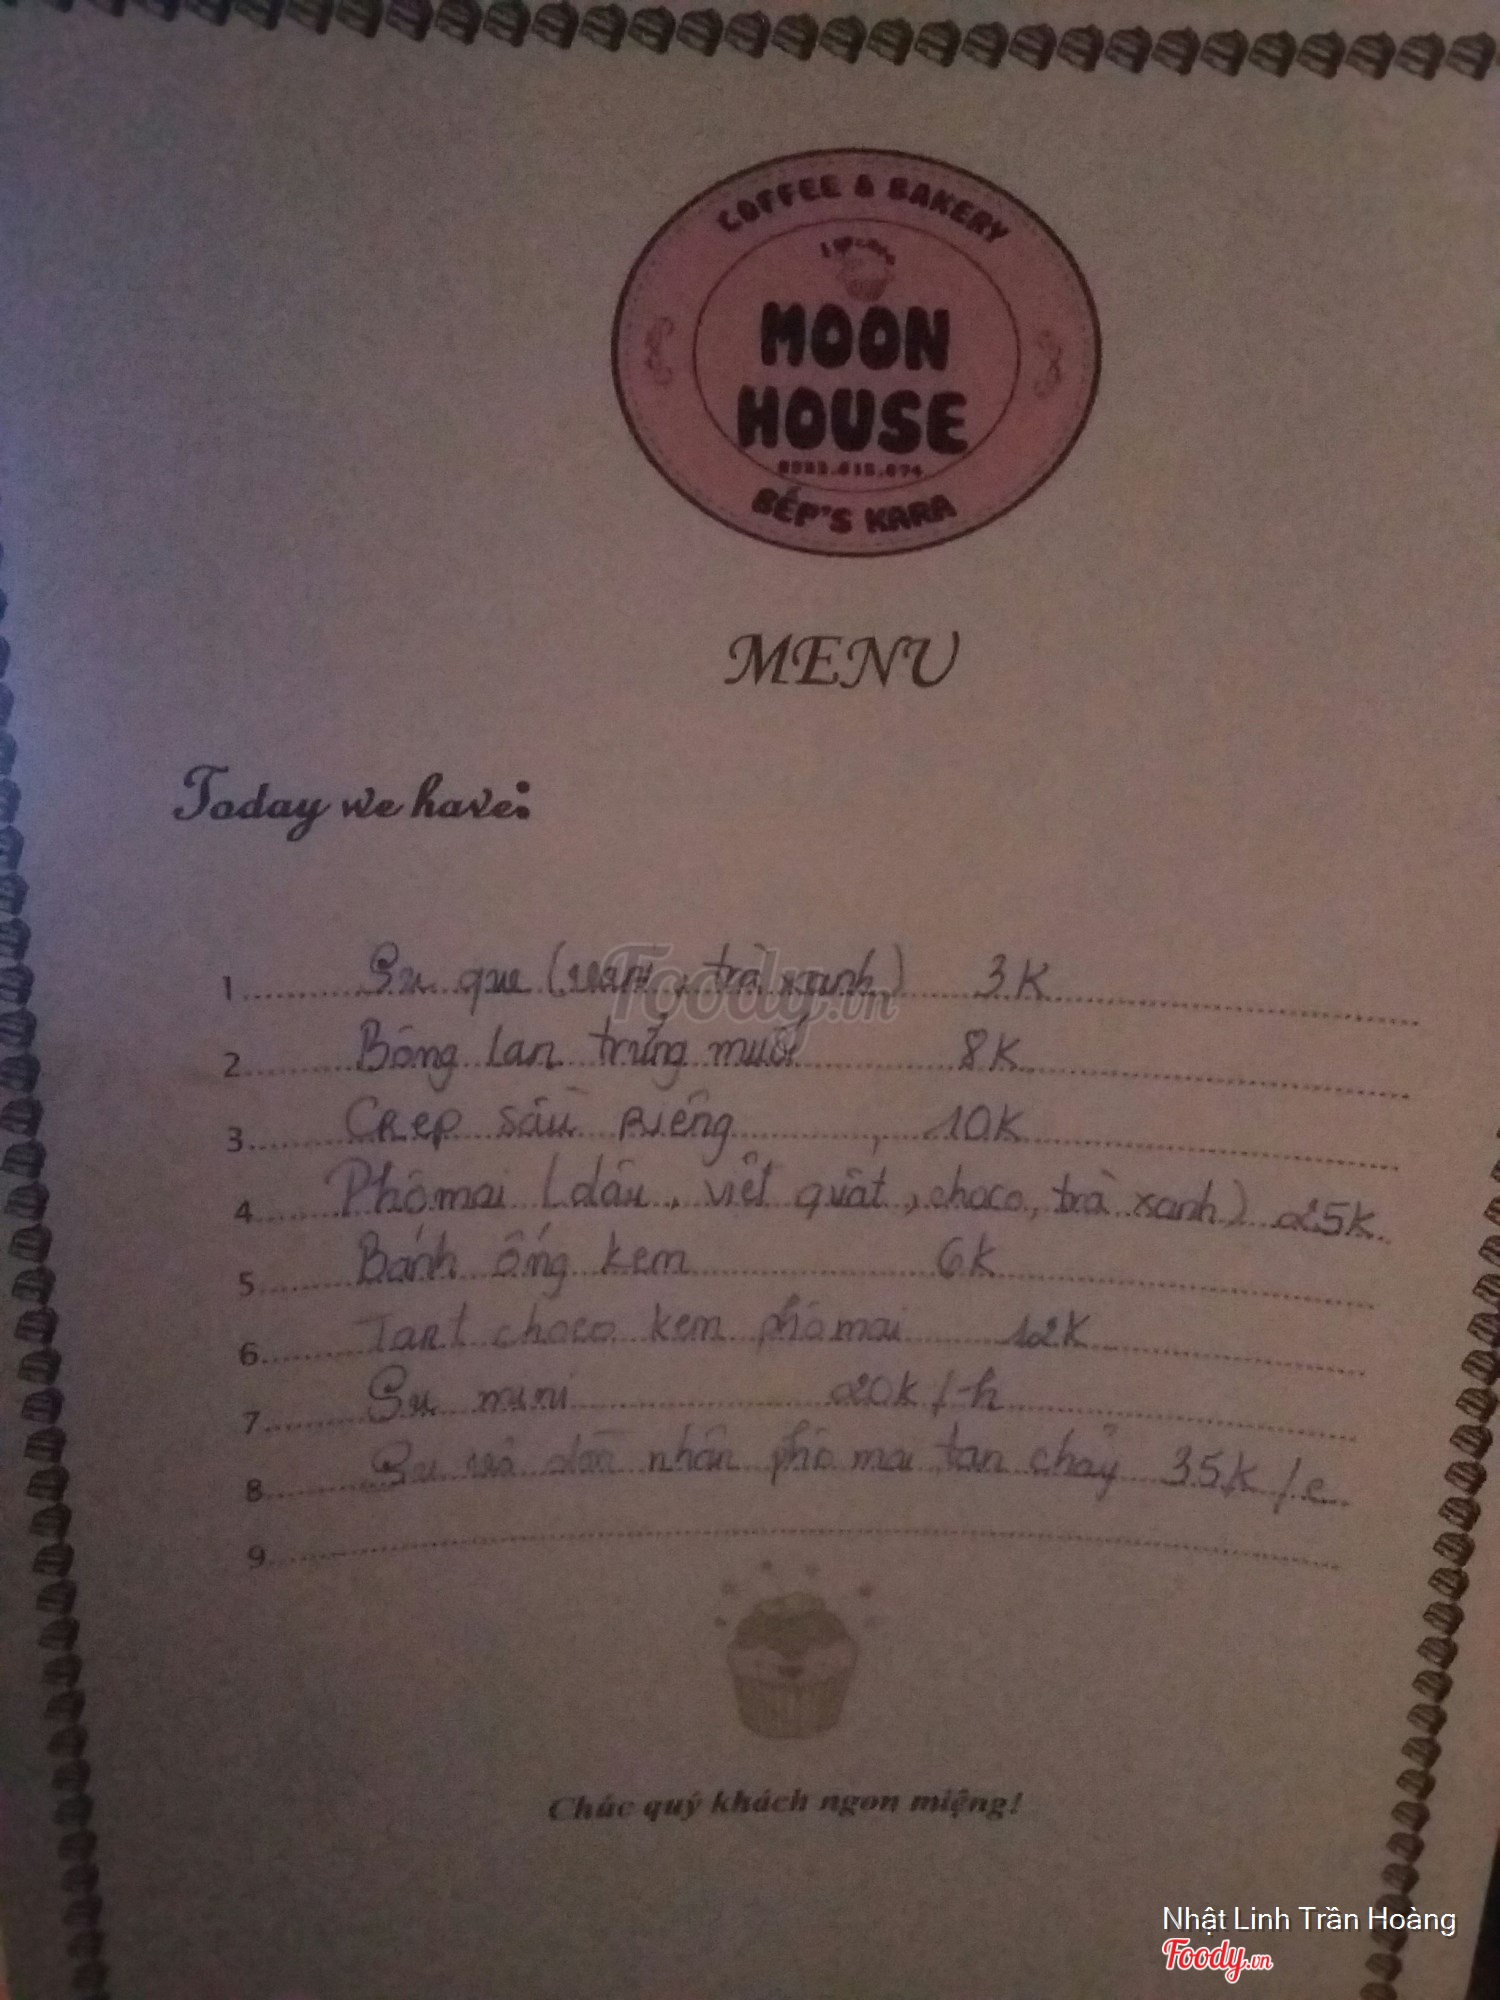 COFFEE & BAKERY
MOON
HOUSE
BẾP'S KARA
MENU
Today we have:
1 Su que (vani, trà xanh) 3K
2 Bông lan trứng muối 8K
3 Crep sầu riêng 10K
4 Phômai (dâu, việt quât, choco, trà xanh) 25K
5 Bánh ống kem 6K
6 Tart choco kem phômai 12K
7 Su mini 20K/h
8 Su nhân phô mai tan chảy 35K/c
9
Chúc quý khách ngon miệng!
Foody.vn
Nhật Linh Trần Hoàng
Foody.vn